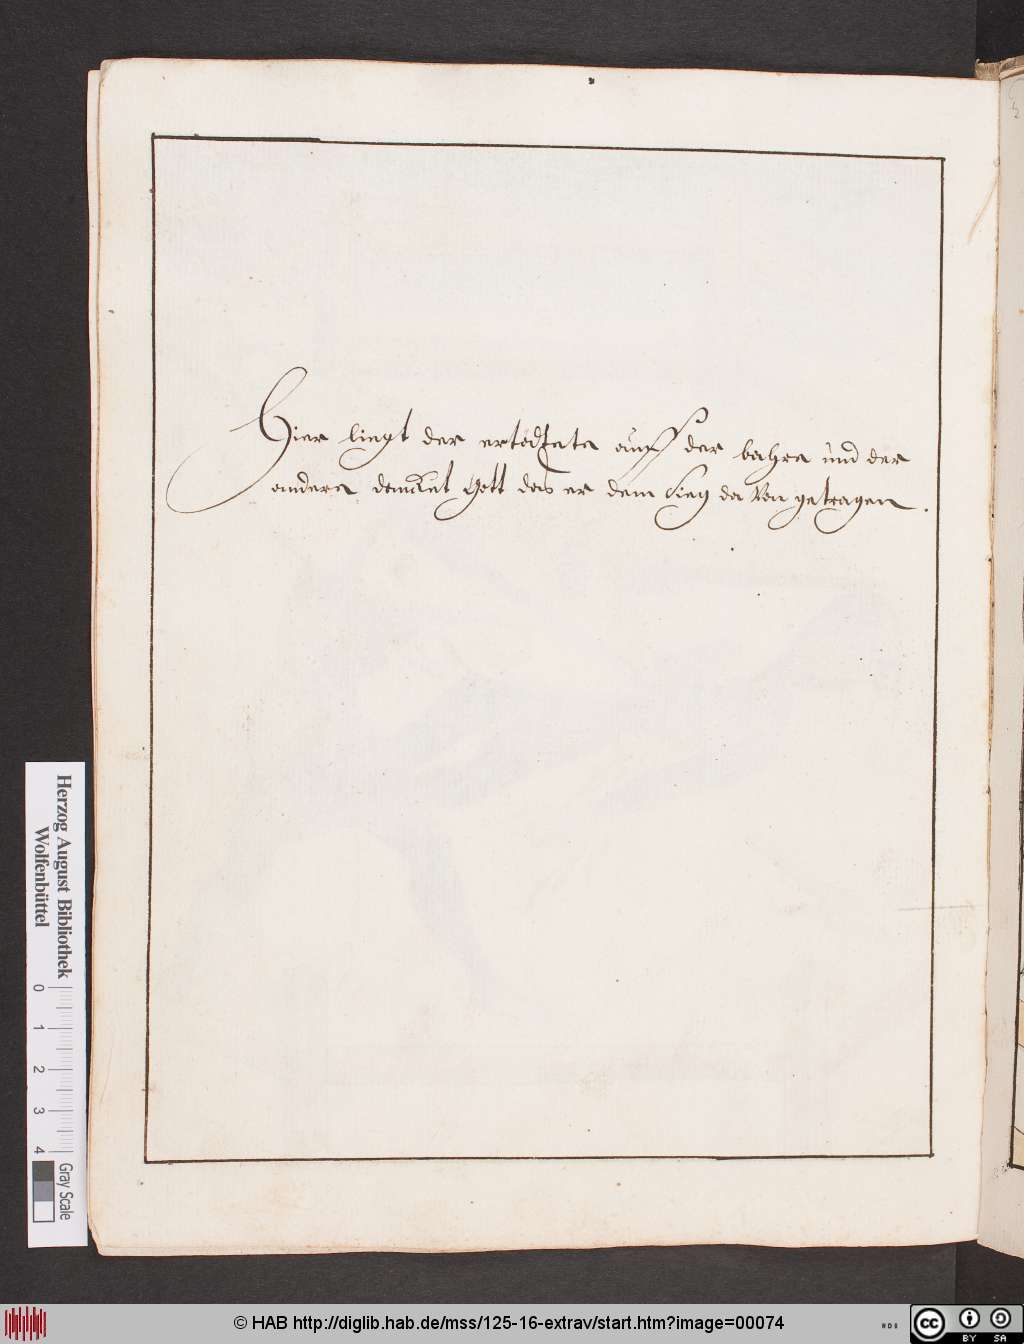 Hier liegt der ertödtete auff der bahre und der
andere dancket Gott das er dem Sieg da Von getragen.
Herzog August Bibliothek
Wolfenbüttel
0 1 2 3 4
Gray Scale
© HAB http://diglib.hab.de/mss/125-16-extrav/start.htm?image=00074
cc BY SA